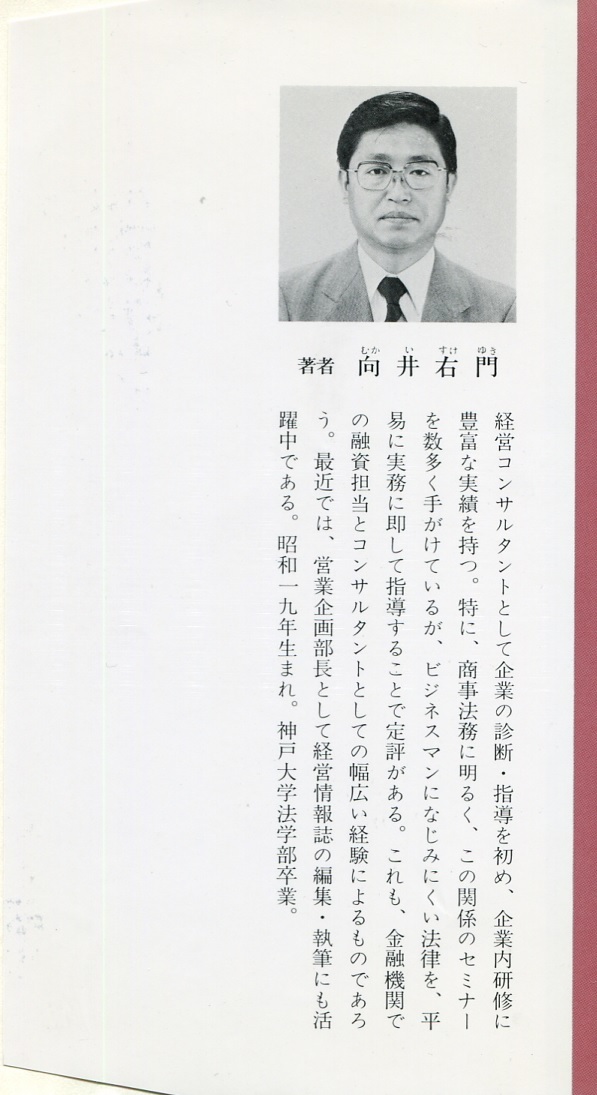 著者 向井右門
むか い すけ ゆき
経営コンサルタントとして企業の診断・指導を初め、企業内研修に
豊富な実績を持つ。特に、商事法務に明るく、この関係のセミナー
を数多く手がけているが、ビジネスマンになじみにくい法律を、平
易に実務に即して指導することで定評がある。これも、金融機関で
の融資担当とコンサルタントとしての幅広い経験によるものであろ
う。最近では、営業企画部長として経営情報誌の編集・執筆にも活
躍中である。昭和一九年生まれ。神戸大学法学部卒業。